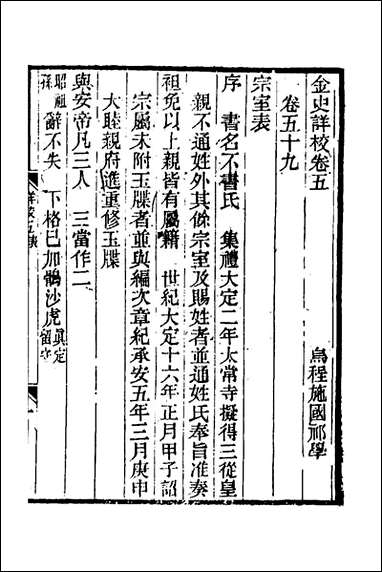 金史詳校卷五
烏程施國祁學
卷五十九
宗室表
序　書名不書氏　集禮大定二年太常寺擬得三從皇
親不通姓外其餘宗室及賜姓者並通姓氏奉旨准奏
祖免以上親皆有屬籍　世紀大定十六年正月甲子詔
宗屬未附玉牒者並與編次章紀承安五年三月庚申
大睦親府進重修玉牒
與安帝凡三人　三當作二
昭祖孫　辭不失　下格已加鶻沙虎眞定留守